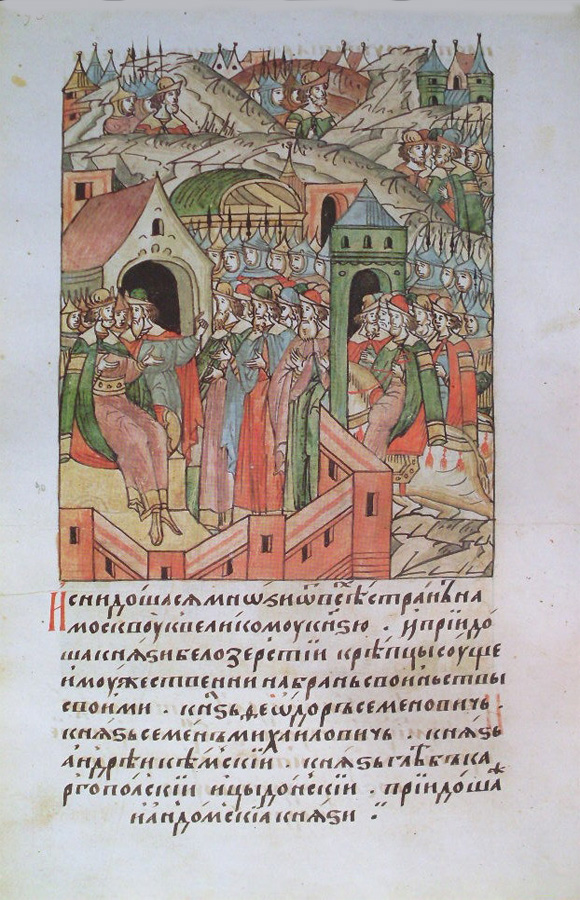 И снидошася мнѡѕи ѿ всѣⷯ странъ на
москвоу к великомоу кн҃ѕю . и прїидо
ша кнѧѕи белозерстїи крѣпцы соуще
и моужественни на брань с воиньствы
своими . кн҃ѕь, деѡдоръ семеновичь .
кнѧѕь семенъ михаиловичь . кнѧѕь
андрѣи кѣмскїи . кнѧѕь глѣбъ ка
ргополскїи и цыдонскїи . прїидошаⷤ
и андомскїа кнѧѕи .